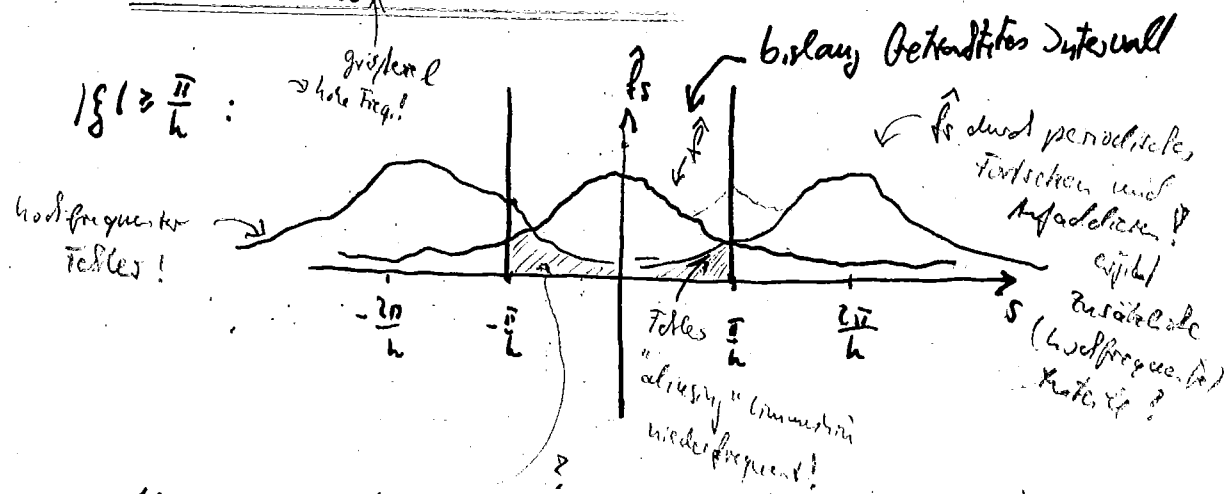 → hohe Freq.!
|ξ| ≥ π/h :
f̂s
bislang betrachtetes Intervall
f̂
f̂s durch periodisches
Fortsetzen und
Aufaddieren!
ergibt
zusätzliche
(hochfrequente)
Anteile!
hochfrequenter
Fehler!
-2π/h
-π/h
π/h
2π/h
s
Fehler
"aliasing" immerhin
niederfrequent!
?